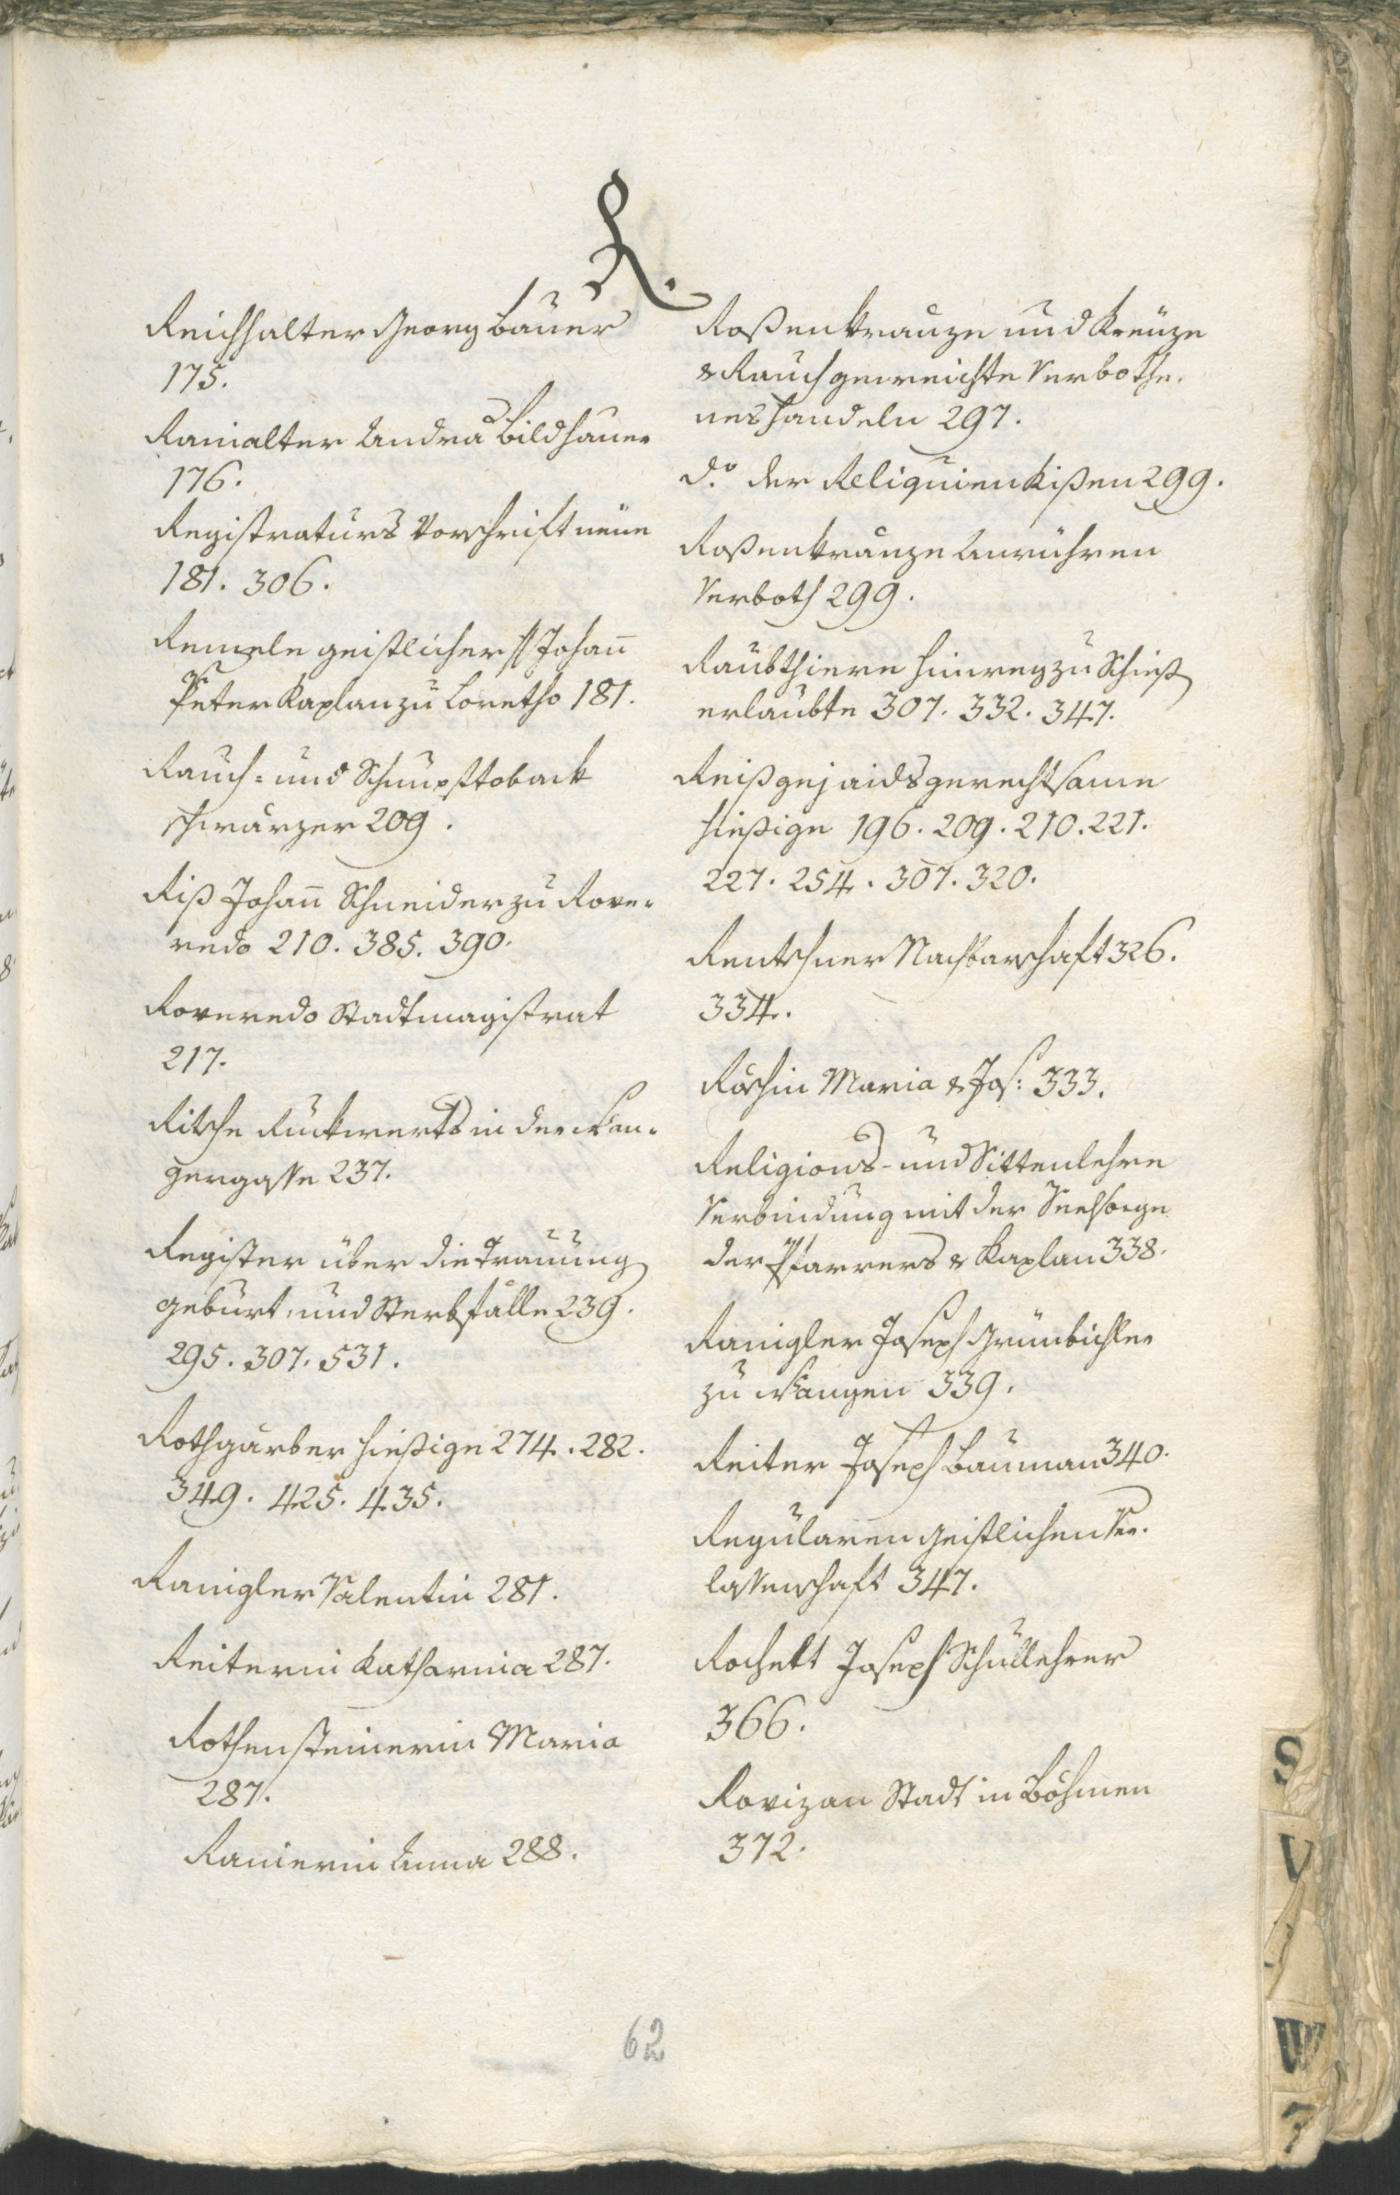 R.
Reichhalter Georg Bauer
175.
Ranialter Andrä Bildhauer
176.
Registraturs Vorschrift neüe
181. 306.
Remele geistlicher H Johann
Peter Kaplan zu Loretho 181.
Rauch- und Schnupftoback
schwärzer 209.
Riß Johann Schneider zu Rove-
redo 210. 385. 390.
Roveredo Stadtmagistrat
217.
Ritsche Rückwerts in der Wan-
gergasse 237.
Register über die Trauung
geburt, und Sterbfälle 239.
295. 307. 531.
Rothgärber hießige 274. 282.
349. 425. 435.
Ranigler Valentin 281.
Reiterin Katharina 287.
Rothensteinerin Maria
287.
Ranierin Anna 288.
Roßenkranze und Kreuze
& Rauchgereichte Verbothe-
nes handeln 297.
d.o der Reliquien Kißen 299.
Roßenkranze Anrühren
Verboth 299.
Raubthiere hinweg zu Schieß
erlaubte 307. 332. 347.
Reißgejaidsgerechtsame
hießige 196. 209. 210. 221.
227. 254. 307. 320.
Rentschner Nachbarschaft 326.
334.
Röschin Maria & Jos: 333.
Religions- und Sittenlehre
Verbindung mit der Seelsorge
der Pfarrers & Kaplan 338.
Ranigler Joseph Grünbichler
zu Wangen 339.
Reiter Joseph Bauman 340.
Regularen Geistlichen Ver-
lassenschaft 347.
Rochelt Joseph Schullehrer
366.
Rovizan Stadt in Böhmen
372.
62
S
V
W
Z